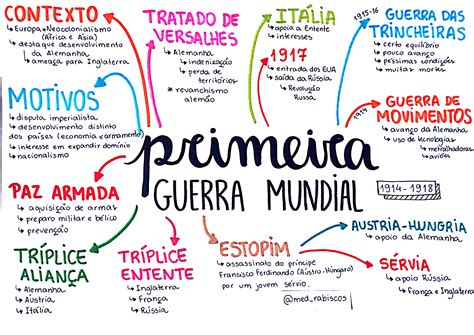 CONTEXTO
Europa → Neocolonialismo
(África e Ásia)
destaque desenvolvimento
da Alemanha
ameaça p/ Inglaterra
TRATADO DE
VERSALHES
Alemanha
indenização
perda de
territórios
* revanchismo
alemão
ITÁLIA
apoia a Entente
interesses
1917
entrada dos EUA
saída da Rússia
Revolução
Russa
1915-16
GUERRA DAS
TRINCHEIRAS
certo equilíbrio
pouco avanço
péssimas condições
muitas mortes
MOTIVOS
disputa imperialista
desenvolvimento distinto
dos países (economia e armamento)
interesse em expandir domínio
nacionalismo
1914
GUERRA DE
MOVIMENTOS
avanço da Alemanha
uso de tecnologias
metralhadoras
aviões
primeira
GUERRA MUNDIAL
1914-1918
PAZ ARMADA
aquisição de armas
preparo militar e bélico
prevenção
TRÍPLICE
ALIANÇA
Alemanha
Áustria
Itália
TRÍPLICE
ENTENTE
Inglaterra
França
Rússia
ESTOPIM
assassinato do príncipe
Francisco Ferdinando (Austro-Húngaro)
por um jovem sérvio.
@med_rabiscos
AUSTRIA-HUNGRIA
apoio da Alemanha
SÉRVIA
apoio Rússia
França e Inglaterra